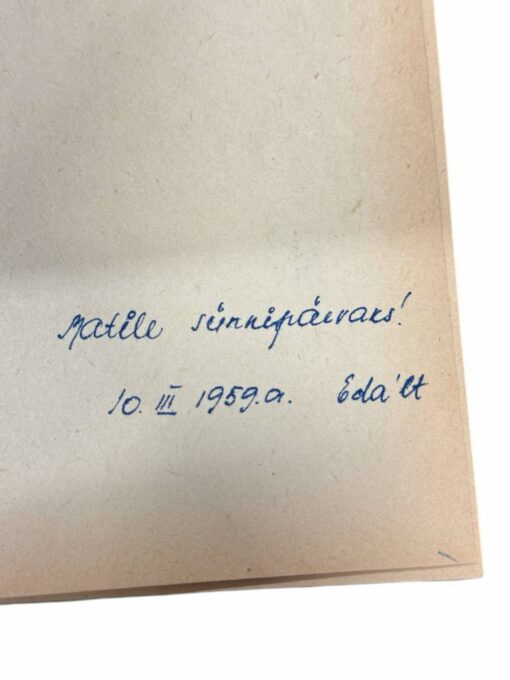 Matile sünnipäevaks!
10. III 1959.a. Eda'lt